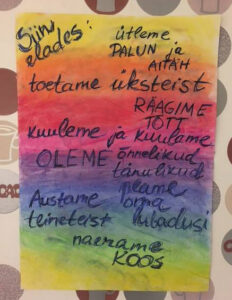 Siin
elades:
ütleme
PALUN ja
AITÄH
toetame üksteist
RÄÄGIME
TÕTT
kuuleme ja kuulame
OLEME õnnelikud
tänulikud
peame
Austame oma
teineteist lubadusi
naerame
KOOS